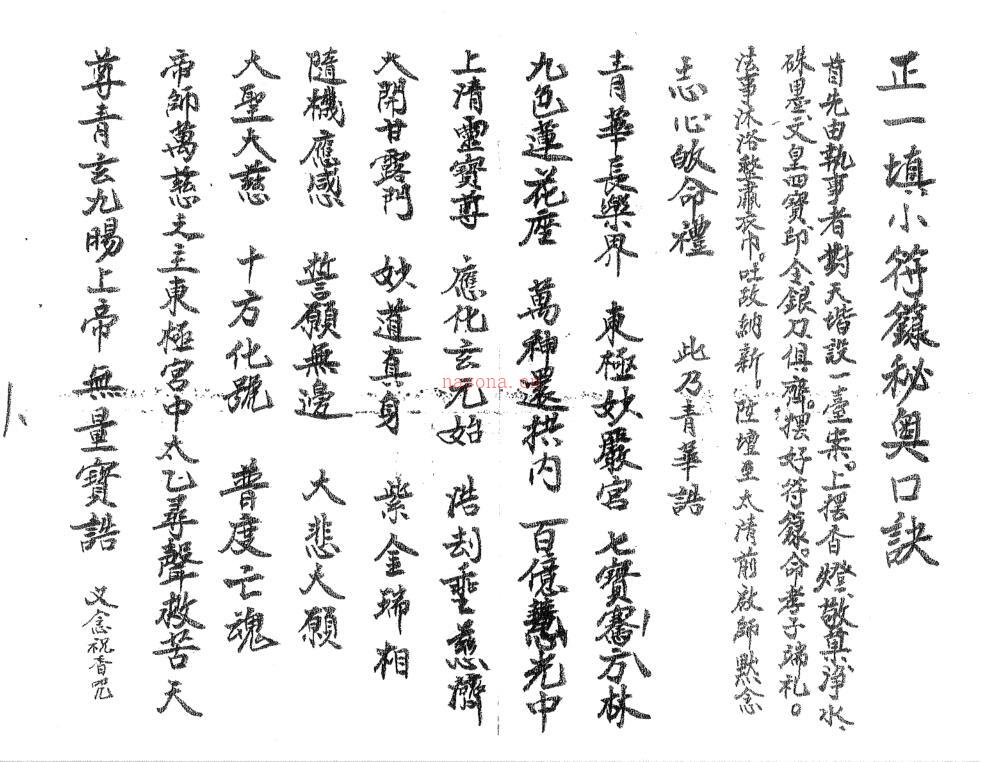 正一填小符籙秘奧口訣
首先由執事者對天堦設一臺案。上擺香燈、敬菓、淨水、
硃墨、文皇四寶印、金銀刀俱齊。擺好符籙。命孝子端礼。
法事沐浴整肅衣巾。吐故納新。陞壇至太清前啟師默念
志心皈命禮 此乃青華誥
青華長樂界 東極妙嚴宮 七寶騫方林
九色蓮花座 萬神還拱內 百億慧光中
上清靈寶尊 應化玄元始 浩刦垂慈濟
大開甘露門 妙道真身 紫金瑞相
隨機應感 誓願無邊 大悲大願
大聖大慈 十方化號 普度亡魂
帝師萬慈父主東極宮中太乙尋聲救苦天
尊青玄九陽上帝無量寶誥 又念祝香咒
nayona.cn